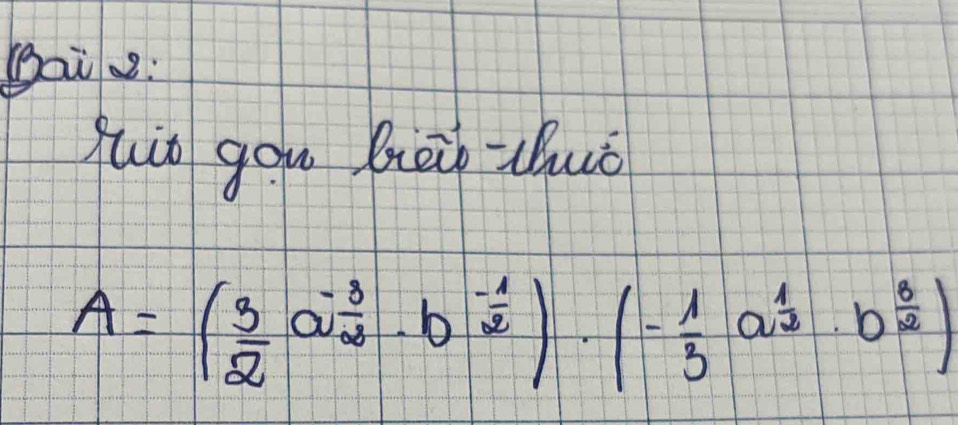 Bài 2:
Rút gọn biểu thức
A = (3/2 a^(-3/2) . b^(-1/2)) . (-1/3 a^(1/2) . b^(3/2))